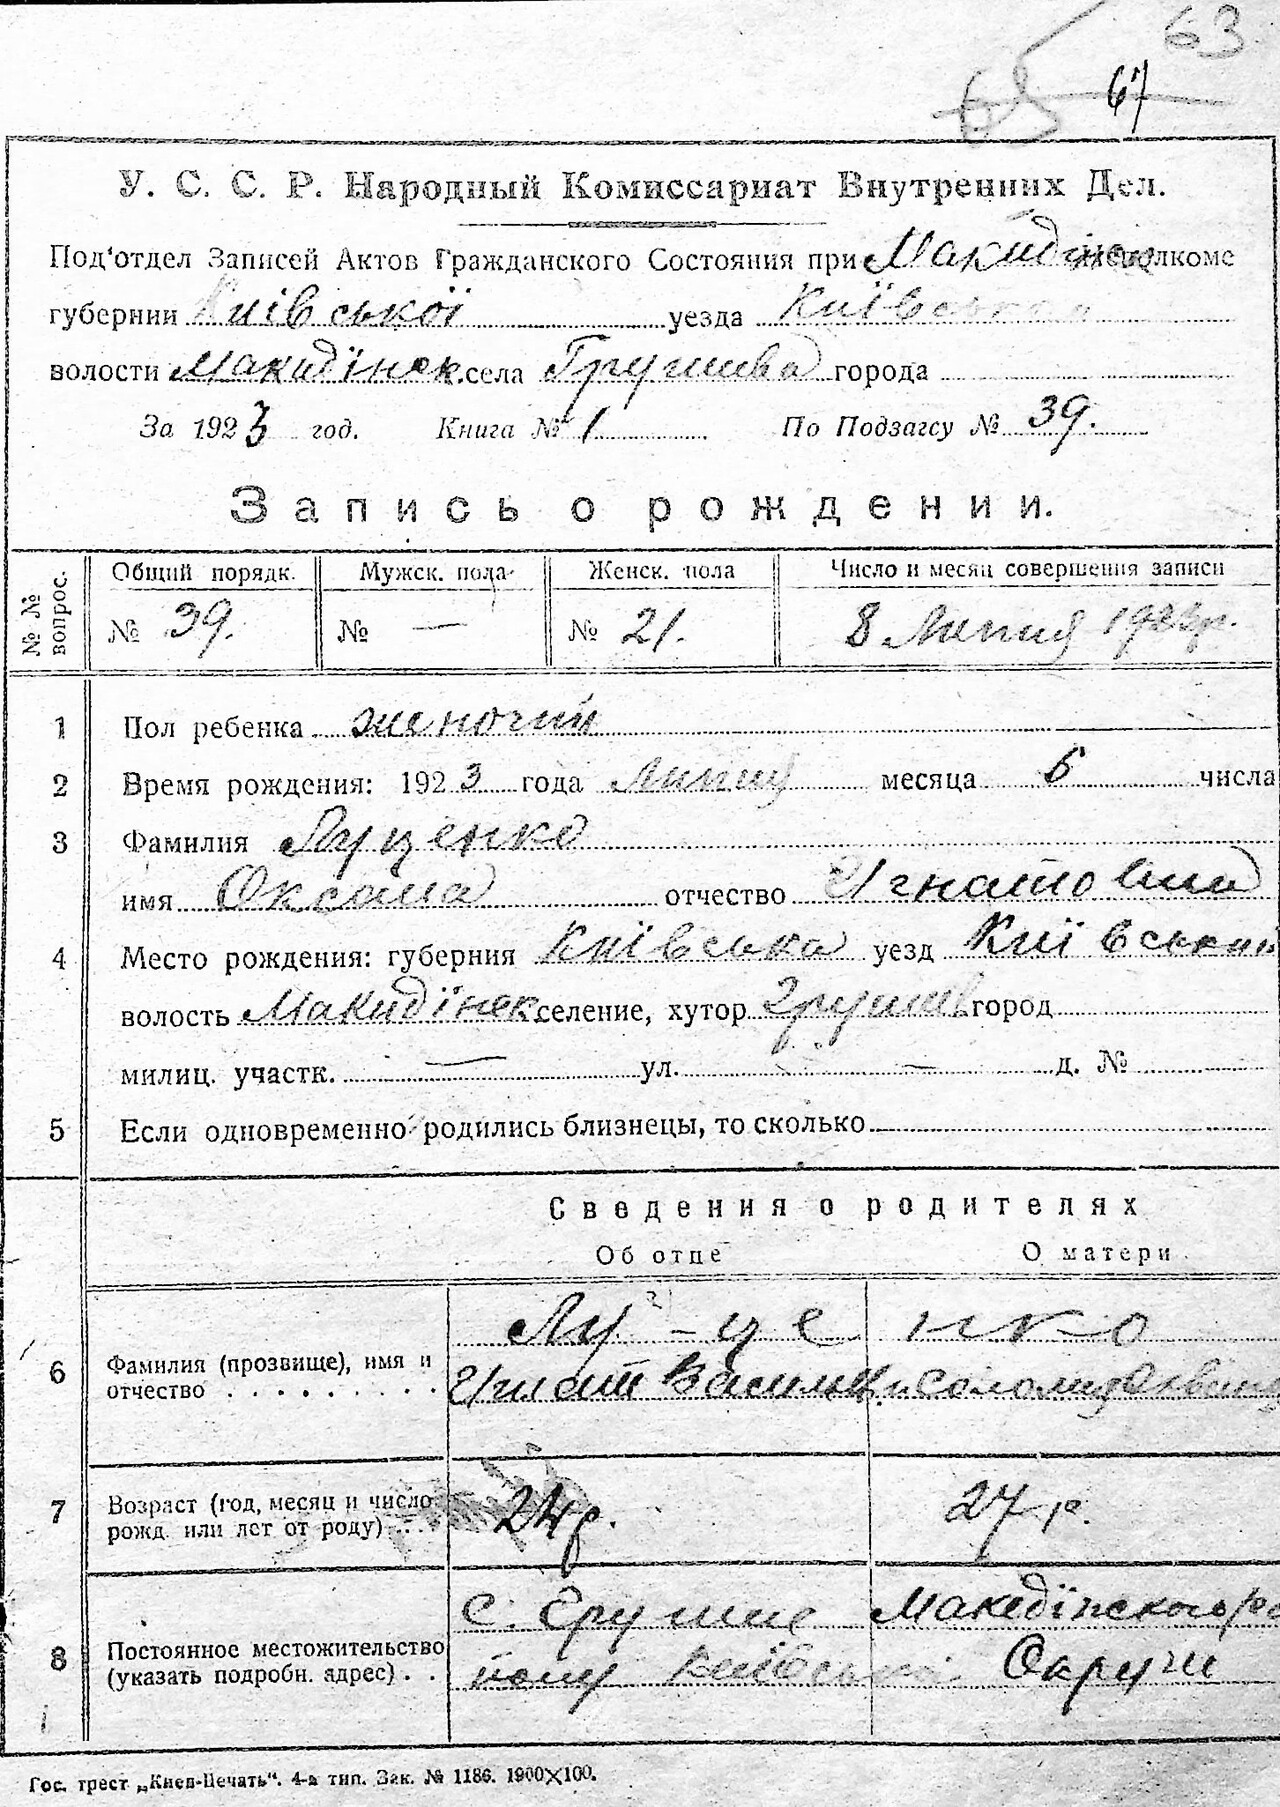 63
65 67
У. С. С. Р. Народный Комиссариат Внутренних Дел.
Под'отдел Записей Актов Гражданского Состояния при Макидінск исполкоме
губернии Київської уезда Київського
волости Макидінск. села Грушева города
За 1923 год. Книга № 1 По Подзагсу № 39.
Запись о рождении.
№ № вопрос. Общий порядк. Мужск. пола Женск. пола Число и месяц совершения записи
№ 39. № — № 21. 8 Липня 1923р.
1 Пол ребенка жіночий
2 Время рождения: 1923 года Липня месяца 6 числа
3 Фамилия Луценко
имя Оксана отчество Игнатовна
4 Место рождения: губерния Київська уезд Київський
волость Макидінск селение, хутор Грушев город
милиц. участк. — ул. — д. №
5 Если одновременно родились близнецы, то сколько
Сведения о родителях
Об отце О матери
6 Фамилия (прозвище), имя и отчество Лу-це нко
Игнат Васильев. и Соломия
7 Возраст (год, месяц и число рожд. или лет от роду) 24р. 27 р.
8 Постоянное местожительство (указать подробн. адрес) с. Грушеве Македінского ра
йону Київської Округи
Гос. трест „Киев-Печать". 4-я тип. Зак. № 1186. 1900×100.